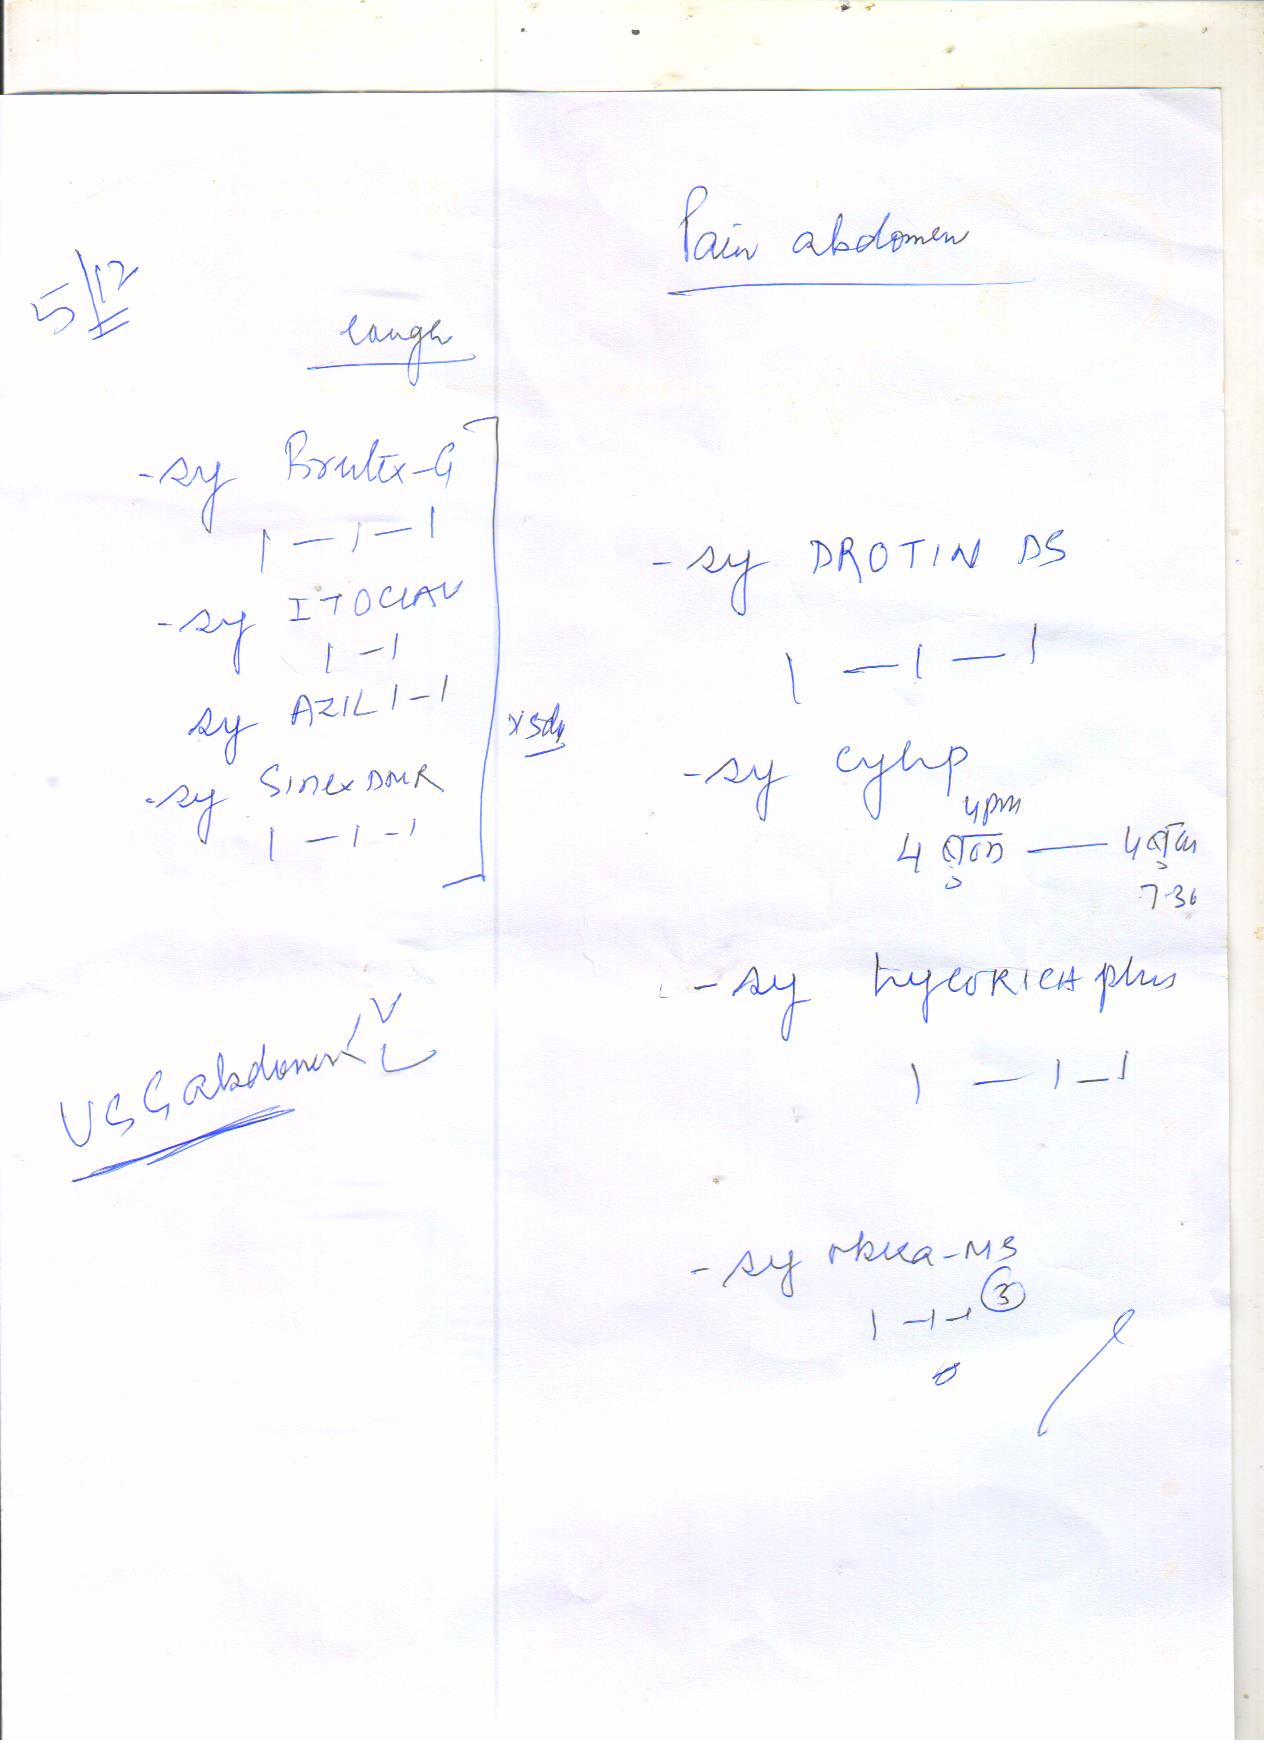 5/12
cough
- sy Brutex-G
1 - 1 - 1
- sy ITOCLAV
1 - 1
sy AZIL 1 - 1
- sy Sinex DMR
1 - 1 - 1
x 5dy
USG abdomen
Pain abdomen
- sy DROTIN DS
1 - 1 - 1
- sy
4pm
4 — 4
7-30
- sy LYCORICH plus
1 - 1 - 1
- sy -MS
1 - 1 - 1 3